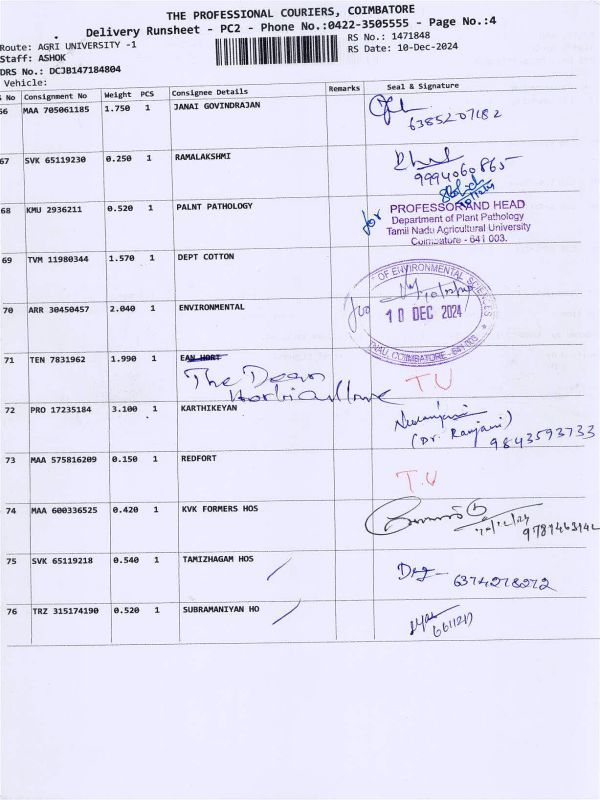 THE PROFESSIONAL COURIERS, COIMBATORE
Delivery Runsheet - PC2 - Phone No.:0422-3505555 - Page No.:4
Route: AGRI UNIVERSITY -1 RS No.: 1471848
Staff: ASHOK RS Date: 10-Dec-2024
DRS No.: DCJB147184804
Vehicle:
S No Consignment No Weight PCS Consignee Details Remarks Seal & Signature
66 MAA 705061185 1.750 1 JANAI GOVINDRAJAN
6385207182
67 SVK 65119230 0.250 1 RAMALAKSHMI
9994060865
68 KMU 2936211 0.520 1 PALNT PATHOLOGY
for PROFESSOR AND HEAD
Department of Plant Pathology
Tamil Nadu Agricultural University
Coimbatore - 641 003.
69 TVM 11980344 1.570 1 DEPT COTTON
OF ENVIRONMENTAL SCIENCES
70 ARR 30450457 2.040 1 ENVIRONMENTAL
for 10 DEC 2024
TNAU, COIMBATORE - 641 003
71 TEN 7831962 1.990 1 EAN HORT
The Dean
TU
72 PRO 17235184 3.100 1 KARTHIKEYAN
(Dr. Ranjani)
9843593733
73 MAA 575816209 0.150 1 REDFORT
T.U
74 MAA 600336525 0.420 1 KVK FORMERS HOS
75 SVK 65119218 0.540 1 TAMIZHAGAM HOS
6374278272
76 TRZ 315174190 0.520 1 SUBRAMANIYAN HO